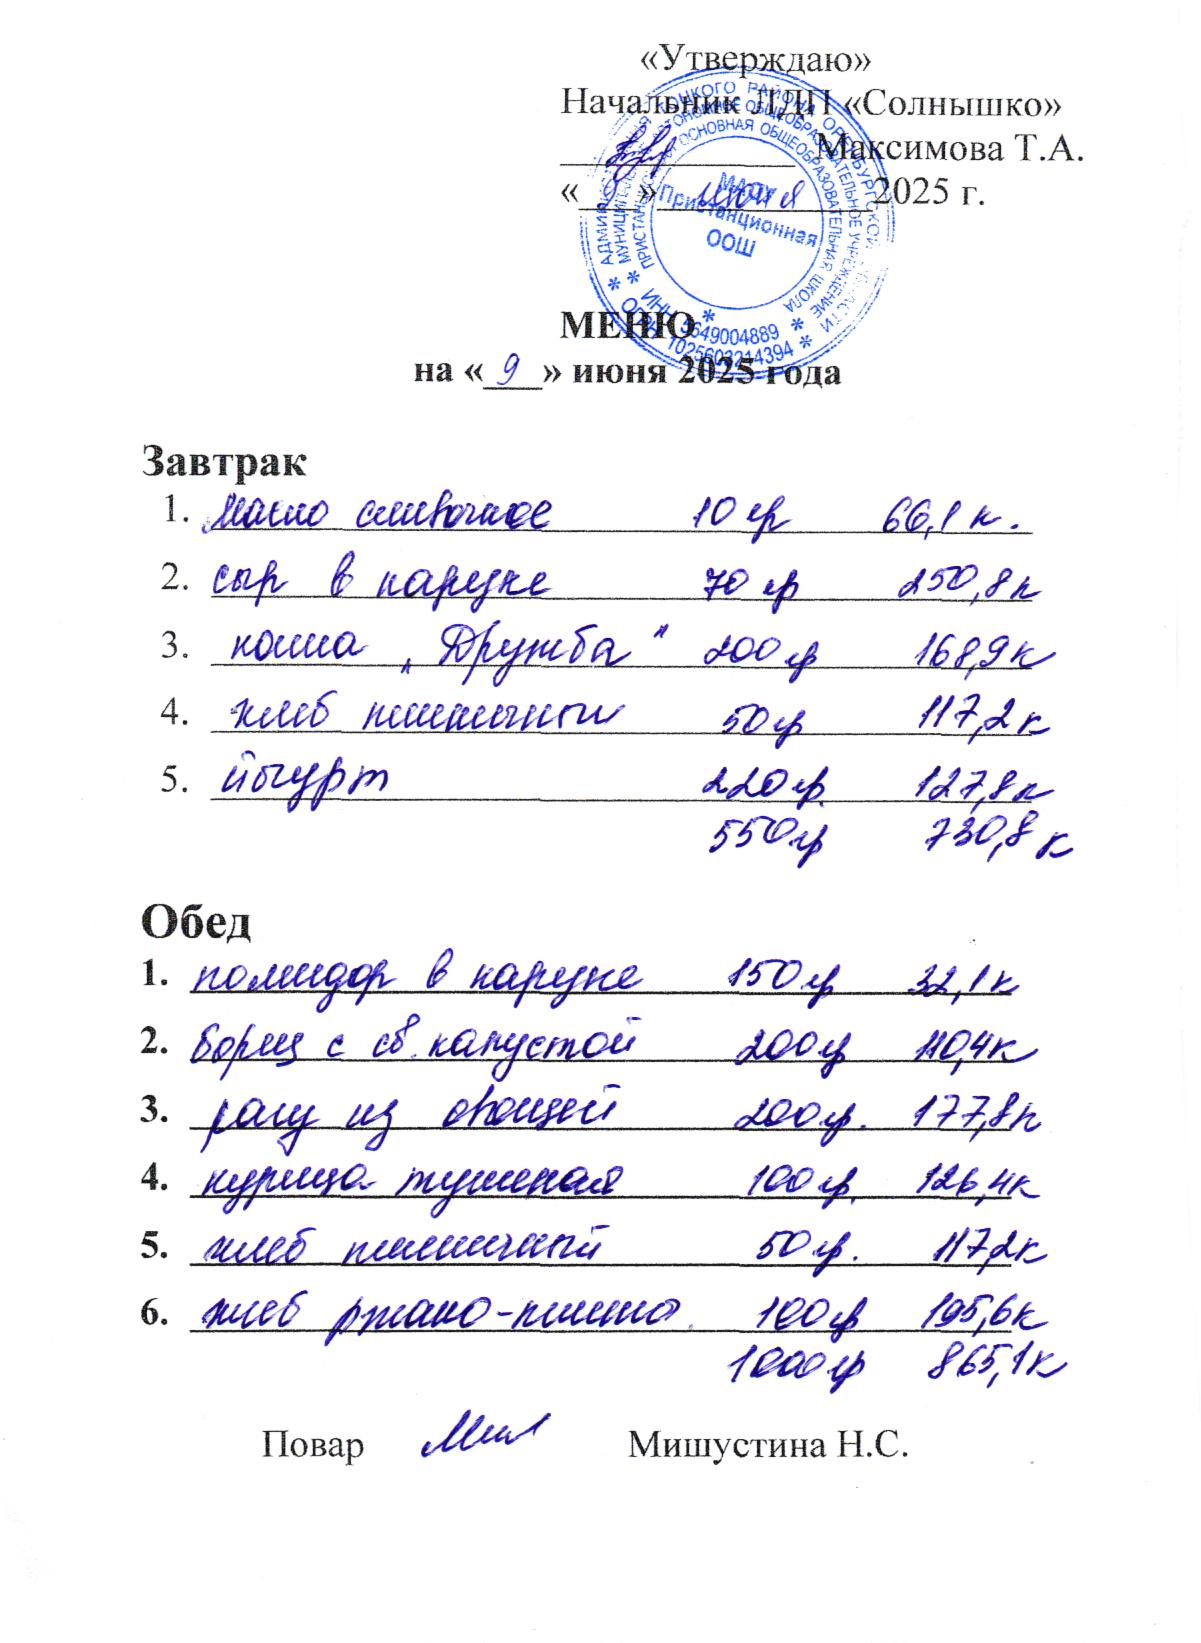 «Утверждаю»
Начальник ЛДП «Солнышко»
Максимова Т.А.
«9» июня 2025 г.
АДМИНИСТРАЦИЯ ТОЦКОГО РАЙОНА ОРЕНБУРГСКОЙ ОБЛАСТИ
МУНИЦИПАЛЬНОЕ АВТОНОМНОЕ ОБЩЕОБРАЗОВАТЕЛЬНОЕ УЧРЕЖДЕНИЕ
ПРИСТАНЦИОННАЯ ОСНОВНАЯ ОБЩЕОБРАЗОВАТЕЛЬНАЯ ШКОЛА
МАОУ
Пристанционная
ООШ
ИНН 5649004889
ОГРН 1025603214394
МЕНЮ
на «9» июня 2025 года
Завтрак
1. Масло сливочное 10 гр 66,1 к.
2. сыр в нарезке 70 гр 250,8 к
3. каша „Дружба" 200 гр 168,9 к
4. хлеб пшеничный 50 гр 117,2 к
5. йогурт 220 гр. 127,8 к
550 гр 730,8 к
Обед
1. помидор в нарезке 150 гр 32,1 к
2. борщ с св. капустой 200 гр 110,4 к
3. рагу из овощей 200 гр. 177,8 к
4. курица тушеная 100 гр. 126,4 к
5. хлеб пшеничный 50 гр. 117,2 к
6. хлеб ржано-пшено. 100 гр 195,6 к
1000 гр 865,1 к
Повар Мишустина Н.С.